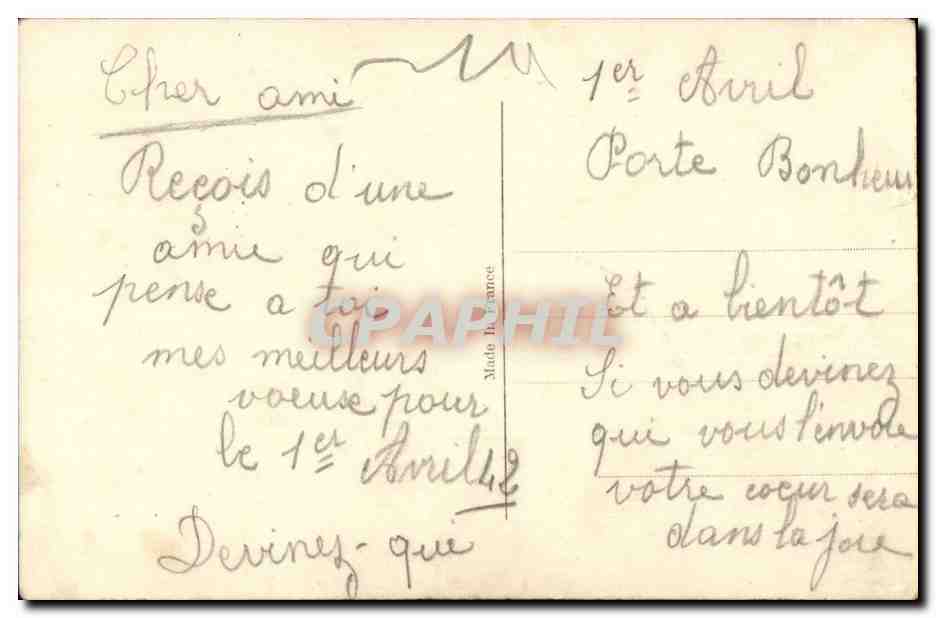 Cher ami
Reçois d'une
amie qui
pense a toi
mes meilleurs
voeuse pour
le 1er Avril 42
Devinez-qui
Made In France
1er Avril
Porte Bonheur
Et a bientôt
Si vous devinez
qui vous l'envoie
votre coeur sera
dans la joie
CPAPHIL